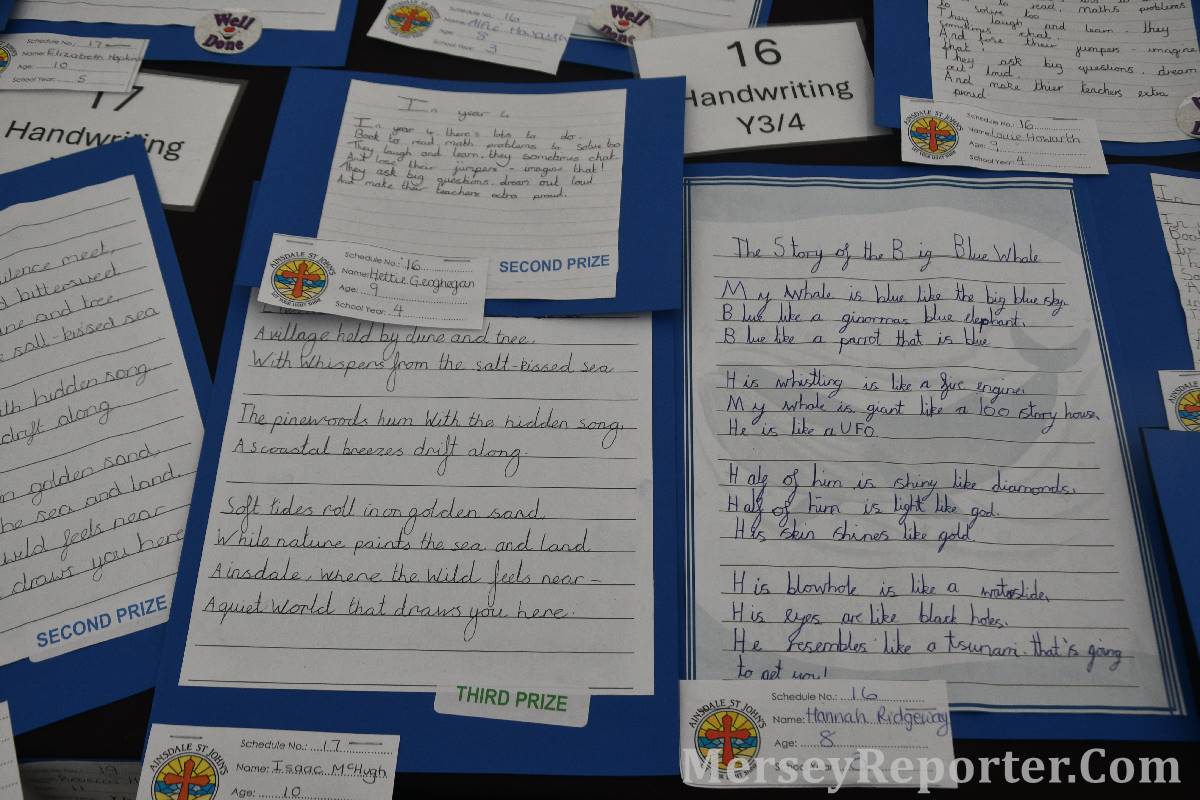 Schedule No.: 17
Name: Elizabeth
Age: 10
School Year: 5
Well Done
Schedule No.: 16
Name:
Age: 8
School Year: 3
Well Done
17
Handwriting
16
Handwriting
Y3/4
to read, maths problems
to solve too
They laugh and learn, they
sometimes chat
And lose their jumpers - imagine
that!
They ask big questions, dream
out loud
And make their teachers extra
proud
Schedule No.: 16
Name: Howarth
Age: 9
School Year: 4
AINSDALE ST JOHN'S
LET YOUR LIGHT SHINE
In year 4
In year 4 there's lots to do.
Book to read, math problems to solve too
They laugh and learn, they sometimes chat
And lose their jumpers - imagine that!
They ask big questions, dream out loud
And make their teachers extra proud.
SECOND PRIZE
AINSDALE ST JOHN'S
LET YOUR LIGHT SHINE
Schedule No.: 16
Name: Hettie Geoghegan
Age: 9
School Year: 4
silence meet,
bittersweet
and tree.
salt-bissed sea
hidden song
drift along
golden sand,
the sea and land.
wild feels near
draws you here
SECOND PRIZE
A village held by dune and tree.
With whispers from the salt-bissed sea
The pinewoods hum With the hidden song,
As coastal breezes drift along.
Soft tides roll in on golden sand,
While nature paints the sea and land
Ainsdale, where the Wild feels near –
A quiet World that draws you here.
THIRD PRIZE
AINSDALE ST JOHN'S
Schedule No.: 17
Name: Isaac McHugh
Age: 10
The Story of the B ig Blue Whale
My whale is blue like the big blue sky.
Blue like a ginormas blue elephant.
Blue like a parrot that is blue
His whistling is like a fire engine.
My whale is giant like a 100 story house.
He is like a UFO
Half of him is shiny like diamonds.
Half of him is light like god.
His skin shines like gold
His blowhole is like a waterslide,
His eyes are like black holes.
He resembles like a tsunami that's going
to get you!
AINSDALE ST JOHN'S
Schedule No.: 16
Name: Hannah Ridgeway
Age: 8
School Year:
MerseyReporter.Com